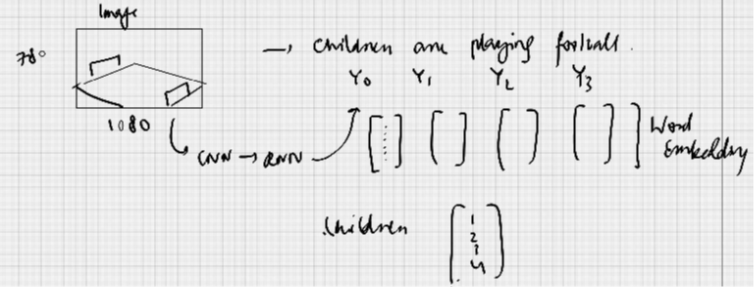 Image
780
→ Children are playing football.
Y0 Y1 Y2 Y3
1080
CNN → RNN
Word Embedding
Children
1
2
3
4